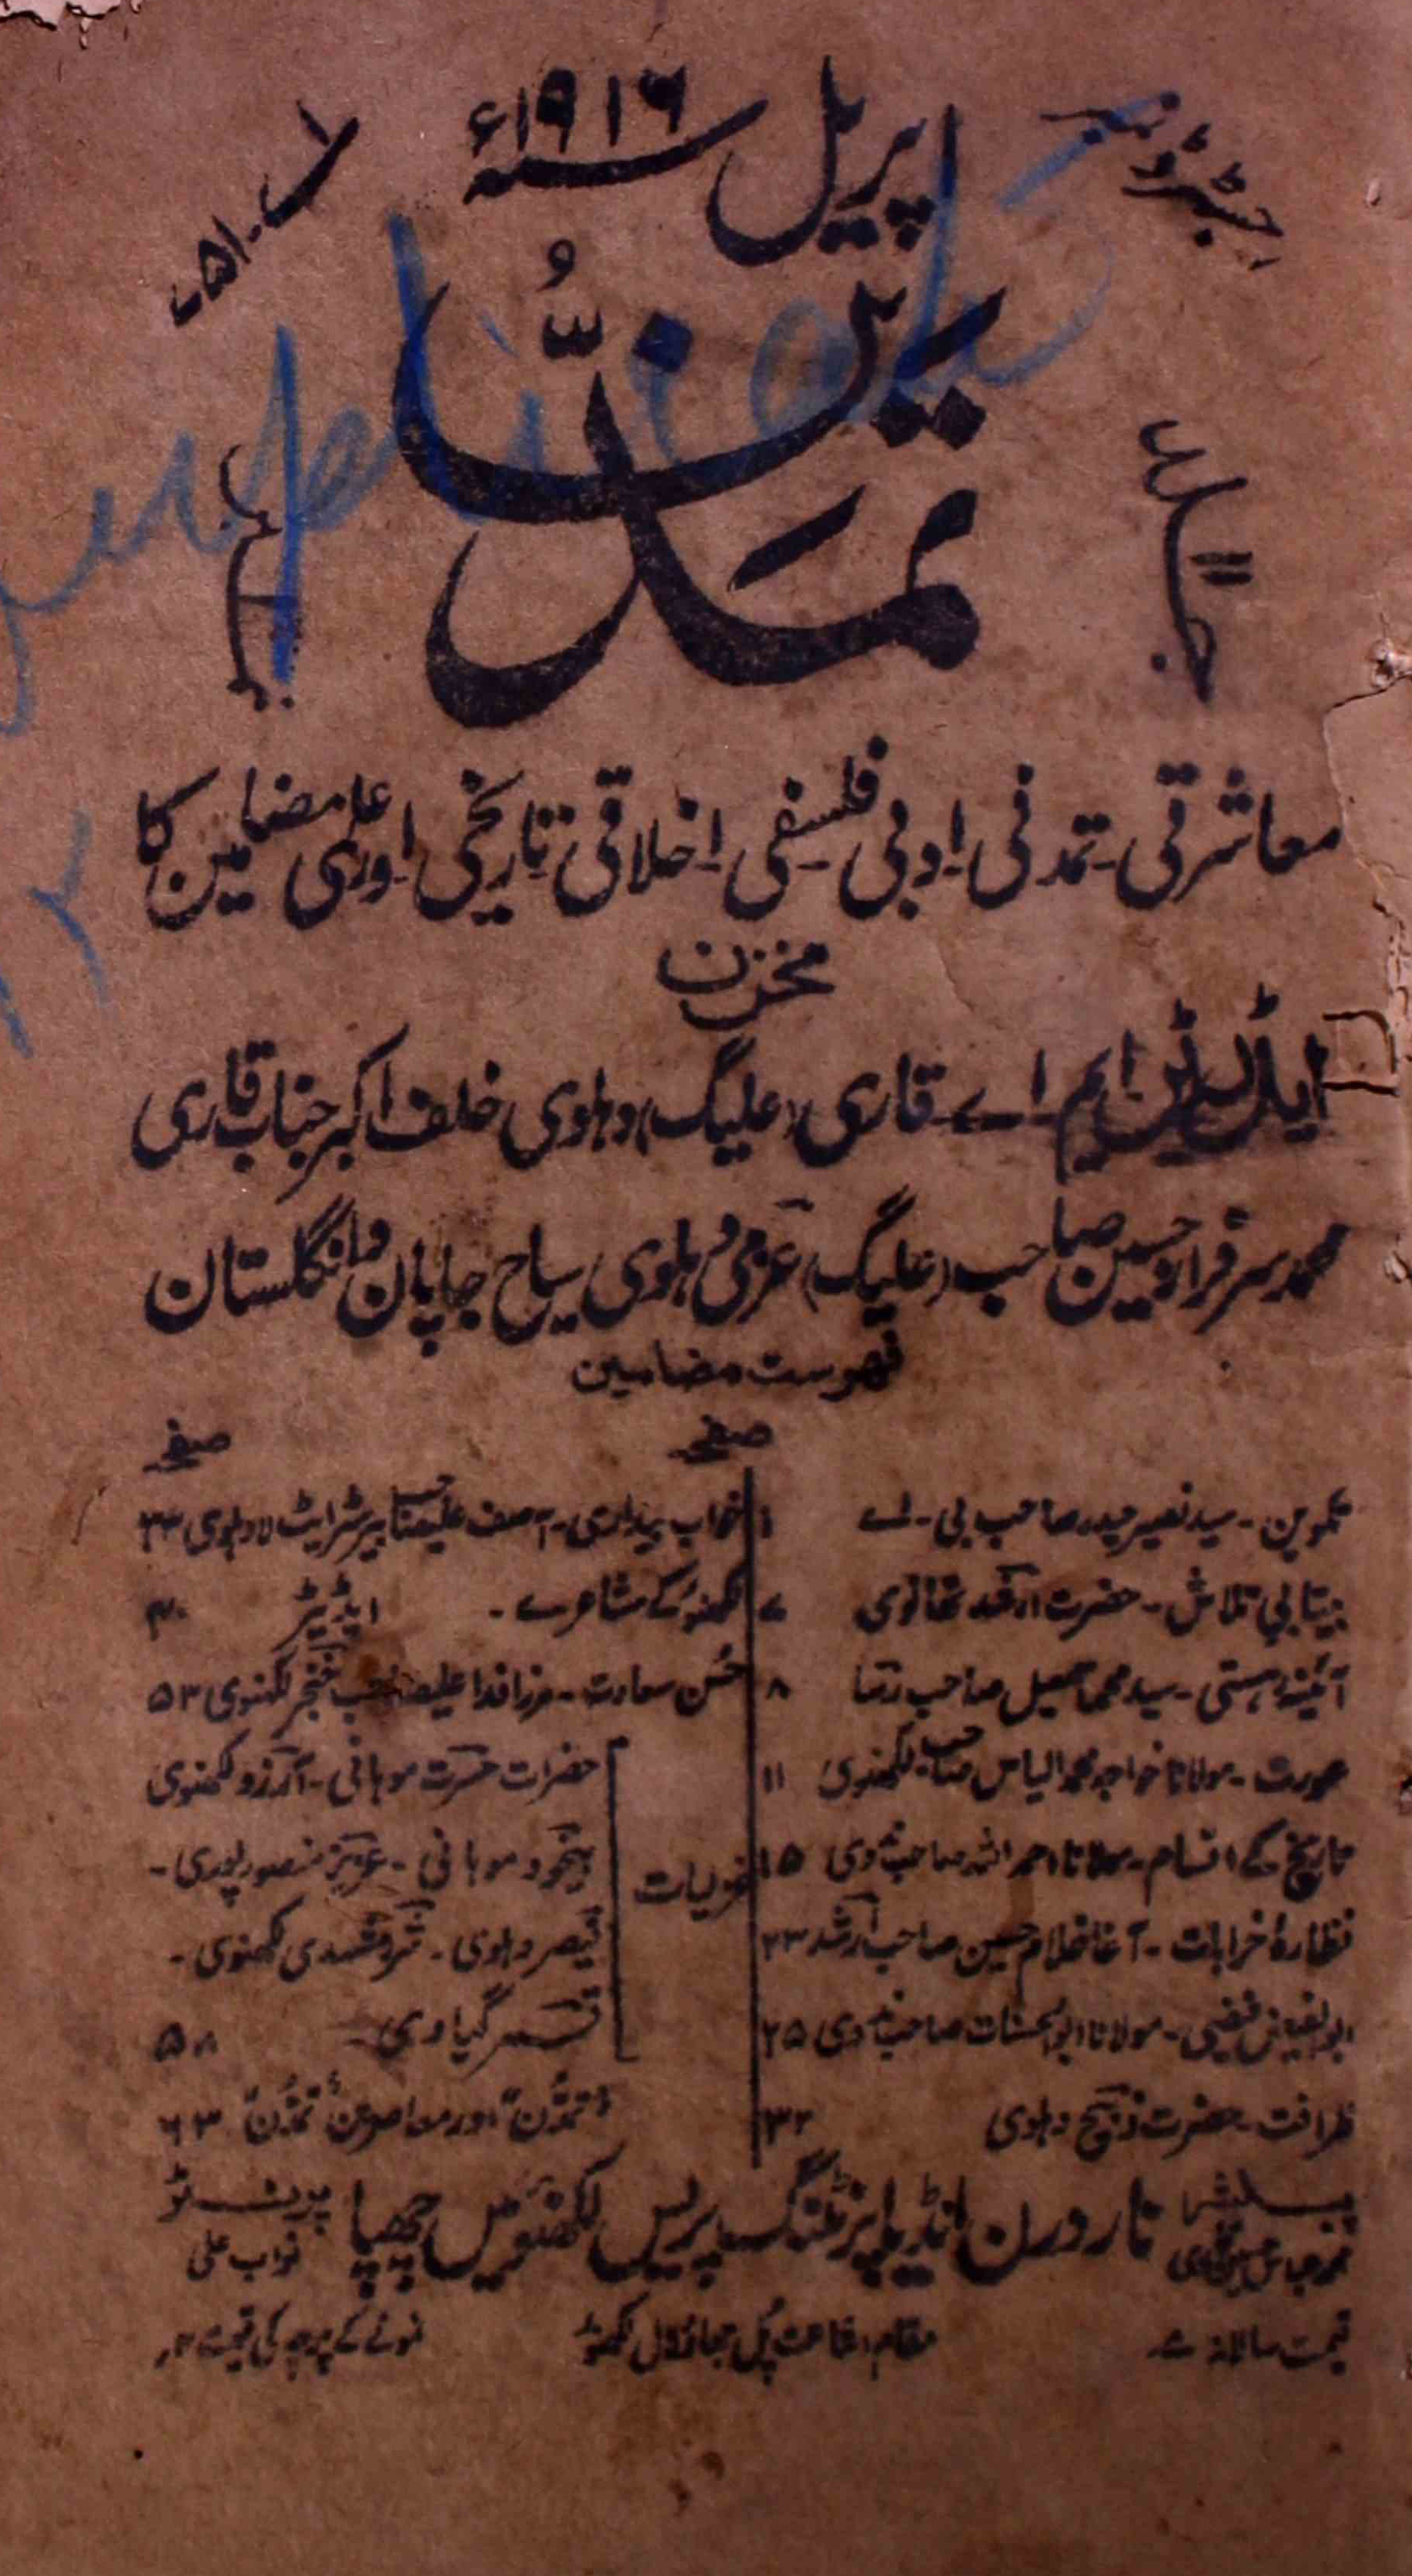 رجسٹرڈ نمبر
اپریل سنہ ۱۹۱۶ء
تمدن
معاشرتی۔ تمدنی۔ ادبی۔ فلسفی۔ اخلاقی۔ تاریخی۔ اور علمی مضامین کا
مخزن
ایڈیٹر۔ ایم۔ اے۔ قاری (علیگ) دہلوی خلف اکبر جناب قاری
محمد سرفراز حسین صاحب (علیگ) عزمی دہلوی سیاح جاپان و انگلستان
فہرست مضامین
صفحہ
سید نصیر حیدر صاحب بی۔ اے ۱
بیتابی تلاش۔ حضرت ارشد تھانوی ۷
آئینہ ہستی۔ سید محمد اسمعیل صاحب رسا ۸
عورت۔ مولانا خواجہ محمد الیاس صاحب لکھنوی ۱۱
تاریخ کے اقسام۔ مولانا احمد اللہ صاحب ندوی ۱۵
نظارۂ خرابات۔ آغا غلام حسین صاحب ارشد ۲۳
ابوالفیض فیضی۔ مولانا ابوالحسنات صاحب ندوی ۲۵
ظرافت۔ حضرت ذبیح دہلوی ۳۲
صفحہ
خواب بیداری۔ آصف علی صاحب بیرسٹر ایٹ لا دہلوی ۳۳
لکھنؤ کے مشاعرے۔ ایڈیٹر ۴۰
حسن سعادت۔ مرزا فدا علی صاحب خنجر لکھنوی ۵۳
غزلیات
حضرات حسرت موہانی۔ آرزو لکھنوی
بیخود موہانی۔ عزیز منصورپوری۔
قیصر دہلوی۔ لکھنوی۔
قمر گیاوی ۵۸
"تمدن" اور معاصرین "تمدن" ۶۳
پبلیشر
نادرن انڈیا پرنٹنگ پریس لکھنؤ میں چھپا
پرنٹر
نواب علی
قیمت سالانہ
مقام اشاعت پل جھاؤلال لکھنؤ
نمونے کے پرچہ کی قیمت ۴؍